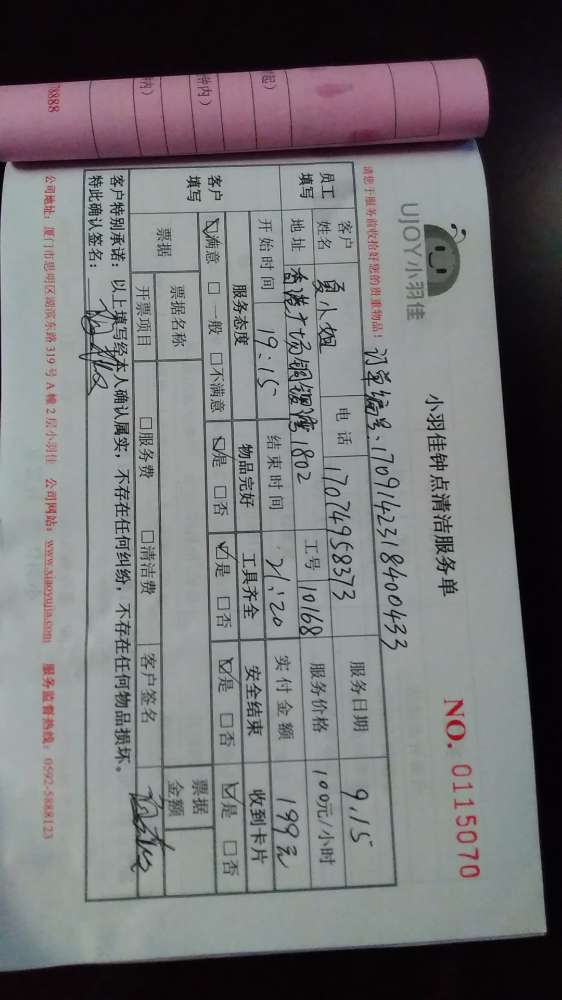 UJOY小羽佳
小羽佳钟点清洁服务单
NO. 0115070
请您于服务前收拾好您的贵重物品!
订单编号:1709142318400433
员工填写
客户姓名 夏小姐 电话 17074958373 服务日期 9.15
地址 香港广场铜锣湾1802 工号 10168 服务价格 100元/小时
开始时间 19:15 结束时间 21:20 实付金额 199元
客户填写
服务态度 物品完好 工具齐全 安全结束 收到卡片
☑满意 □一般 □不满意 ☑是 □否 ☑是 □否 ☑是 □否 ☑是 □否
票据 票据名称 票据金额
开票项目 □服务费 □清洁费 客户签名
客户特别承诺:以上填写经本人确认属实,不存在任何纠纷,不存在任何物品损坏。
特此确认签名:
公司地址:厦门市思明区湖滨东路319号A幢2层小羽佳 公司网站:www.xiaoyujia.com 服务监督热线:0592-5888123
78888
内)
钟内)
起)